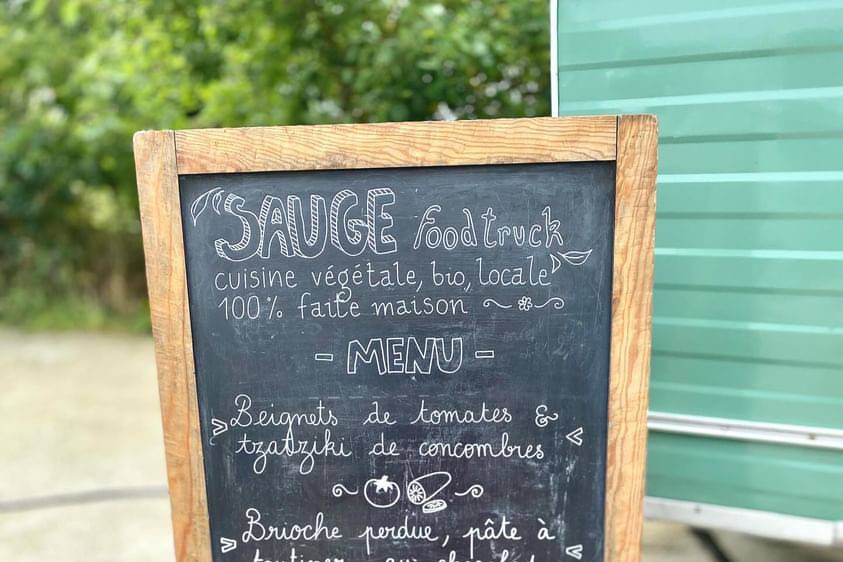 SAUGE food truck
cuisine végétale, bio, locale
100% faite maison
- MENU -
> Beignets de tomates & <
tzatziki de concombres
> Brioche perdue, pâte à <